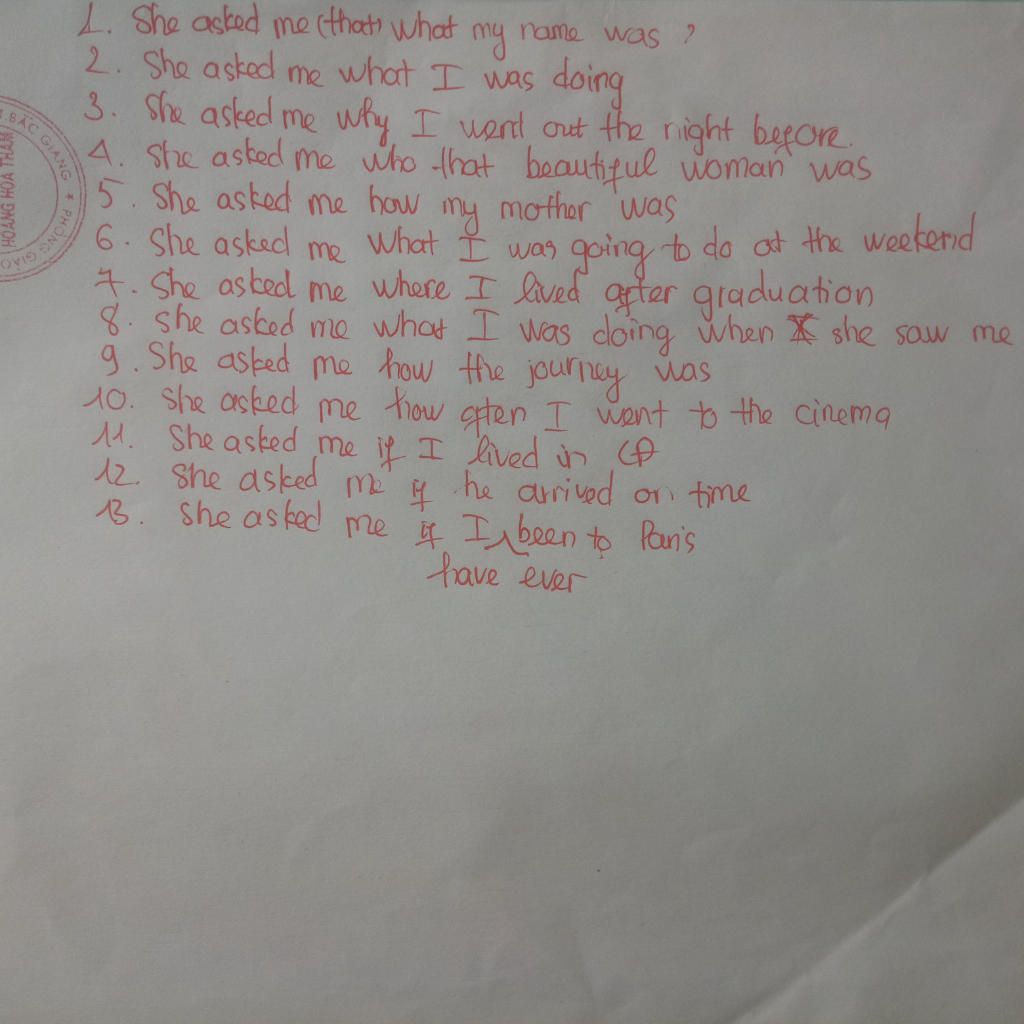 1. She asked me (that) what my name was ?
2. She asked me what I was doing
3. She asked me why I went out the night before.
4. She asked me who that beautiful woman was
5. She asked me how my mother was
6. She asked me what I was going to do at the weekend
7. She asked me where I lived after graduation
8. She asked me what I was doing when she saw me
9. She asked me how the journey was
10. She asked me how often I went to the cinema
11. She asked me if I lived in
12. She asked me if he arrived on time
13. She asked me if I been to Paris
have ever
BẮC GIANG * PHÒNG GIÁO
HOÀNG HOA THÁM